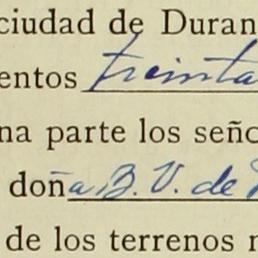 ciudad de Duran
entos treinta
na parte los seño
doña B. V. de
de los terrenos